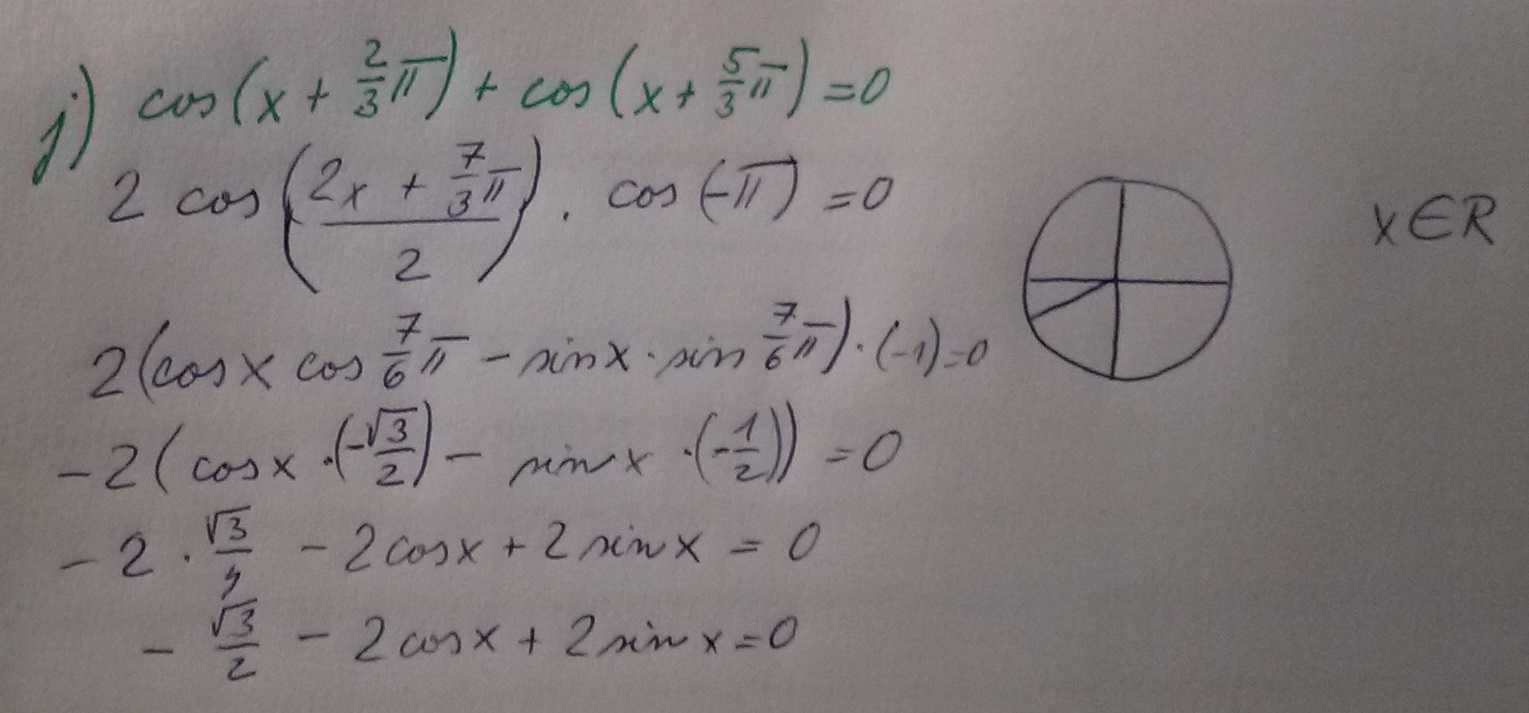 j) cos(x + 2/3 π) + cos(x + 5/3 π) = 0
2 cos((2x + 7/3 π)/2) · cos(-π) = 0
x ∈ R
2(cosx cos 7/6 π - sinx · sin 7/6 π) · (-1) = 0
-2(cosx · (-√3/2) - sinx · (-1/2)) = 0
-2 · √3/4 - 2cosx + 2sinx = 0
-√3/2 - 2cosx + 2sinx = 0